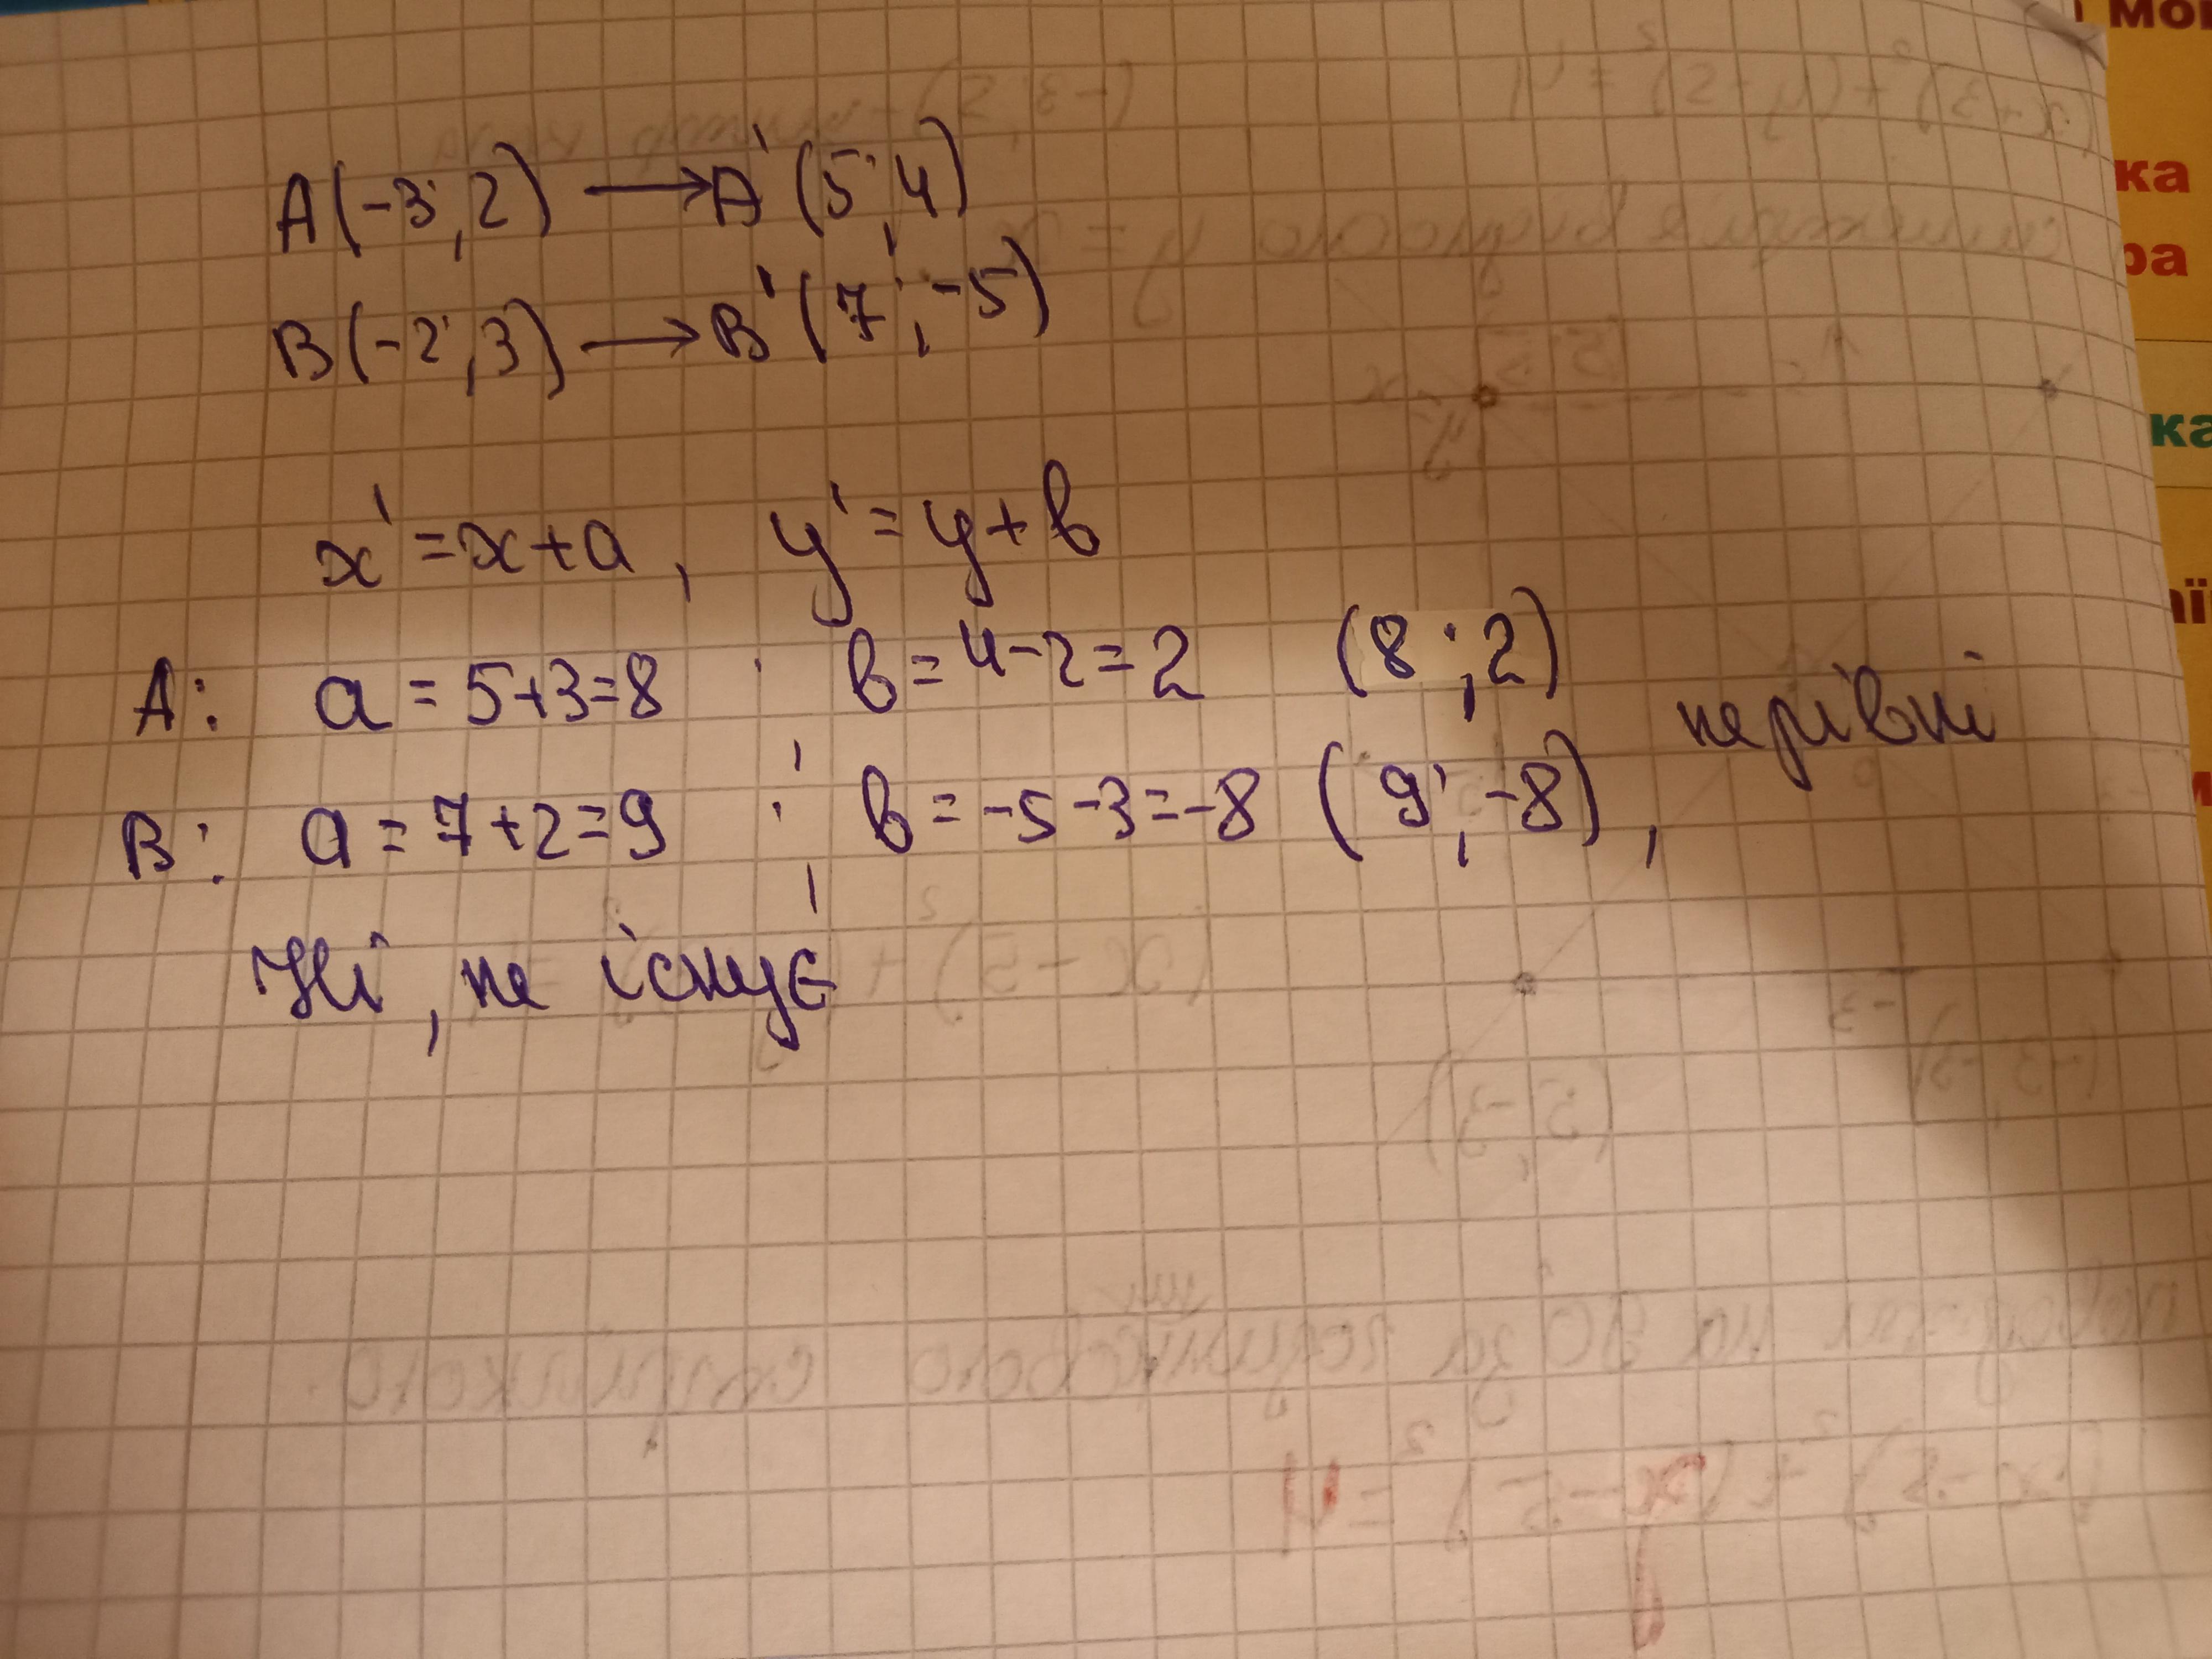 A(-3; 2) → A'(5; 4)
B(-2; 3) → B'(7; -5)
x' = x + a, y' = y + b
A: a = 5+3=8 ; b = 4-2=2 (8; 2)
B: a = 7+2=9 ; b = -5-3=-8 (9; -8), не рівні
Ні, не існує
мо
ка
ра
ка
аї
м